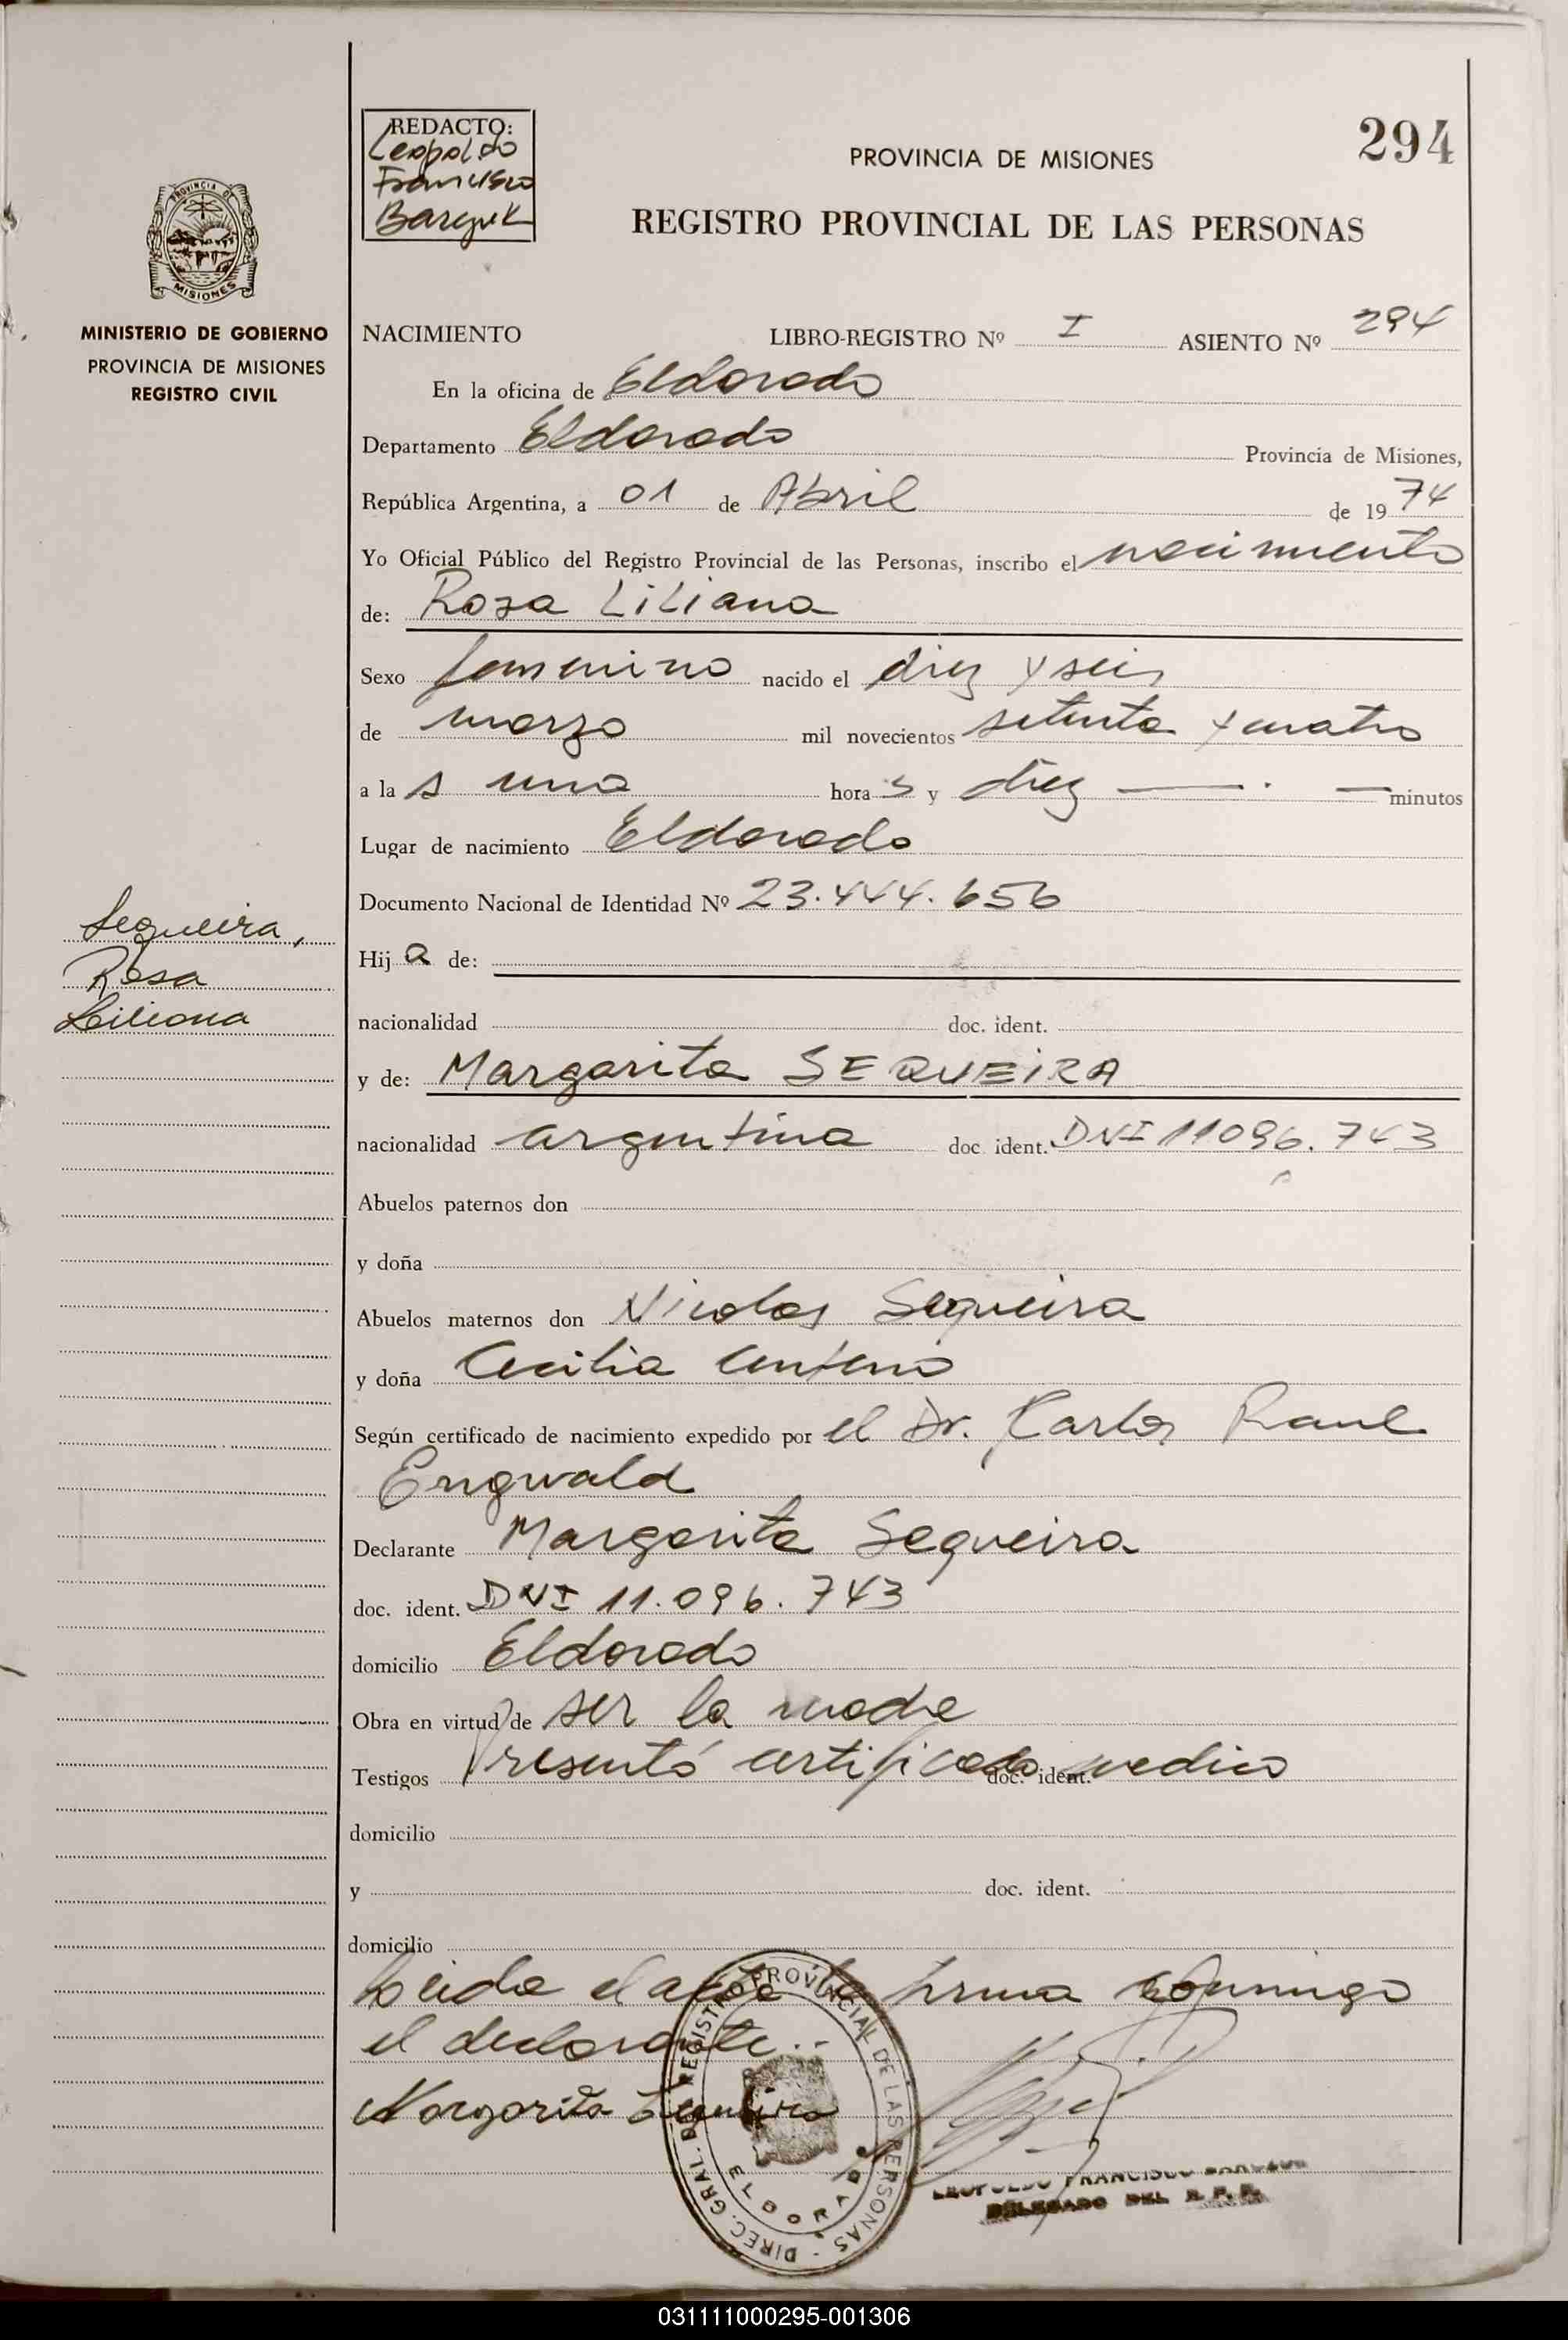 REDACTO:
Leopoldo
Francisco
294
PROVINCIA DE MISIONES
REGISTRO PROVINCIAL DE LAS PERSONAS
PROVINCIA DE
MISIONES
MINISTERIO DE GOBIERNO
PROVINCIA DE MISIONES
REGISTRO CIVIL
NACIMIENTO LIBRO-REGISTRO Nº I ASIENTO Nº 294
En la oficina de Eldorado
Departamento Eldorado Provincia de Misiones,
República Argentina, a 01 de Abril de 19 74
Yo Oficial Público del Registro Provincial de las Personas, inscribo el nacimiento
de: Rosa Liliana
Sexo femenino nacido el diez y seis
de marzo mil novecientos setenta y cuatro
a la s una hora s y diez — . — minutos
Lugar de nacimiento Eldorado
Documento Nacional de Identidad Nº 23.444.656
Sequeira,
Rosa
Liliana
Hij a de:
nacionalidad doc. ident.
y de: Margarita SEQUEIRA
nacionalidad argentina doc. ident. DNI 11096.743
Abuelos paternos don
y doña
Abuelos maternos don Nicolas Sequeira
y doña Cecilia
Según certificado de nacimiento expedido por el Dr. Karlos Raul
Engwald
Declarante Margarita Sequeira
doc. ident. DNI 11.096.743
domicilio Eldorado
Obra en virtud de ser la madre
Testigos Presentó certificado medico doc. ident.
domicilio
y doc. ident.
domicilio
Leida el acta la firma conmigo
el declarante.-
Margarita Sequeira
DIREC. GRAL. DEL REGISTRO PROVINCIAL DE LAS PERSONAS -
ELDORADO
LEOPOLDO FRANCISCO
DELEGADO DEL R. P. P.
031111000295-001306